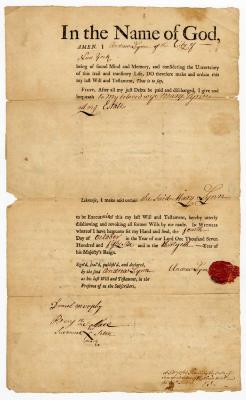 In the Name of God,
AMEN. I Andrew Lynn of the City of
New York
being of sound Mind and Memory, and considering the Uncertainty
of this frail and transitory Life, DO therefore make and ordain this
my last Will and Testament, That is to say,
FIRST, After all my just Debts be paid and discharged, I give and
bequeath to my beloved wife Mary Lynn
all my Estate
Likewise, I make and ordain the said Mary Lynn
to be Execut this my last Will and Testament, hereby utterly
disallowing and revoking all former Wills by me made. In WITNESS
whereof I have hereunto set my Hand and Seal, the fourth
Day of October in the Year of our Lord One Thousand Seven
Hundred and and in the Year
of his Majesty's Reign.
Sign'd, Seal'd, publish'd, and declared,
by the said Andrew Lynn
as his last Will and Testament, in the
Presence of us the Subscribers.
Andrew Lynn
Daniel